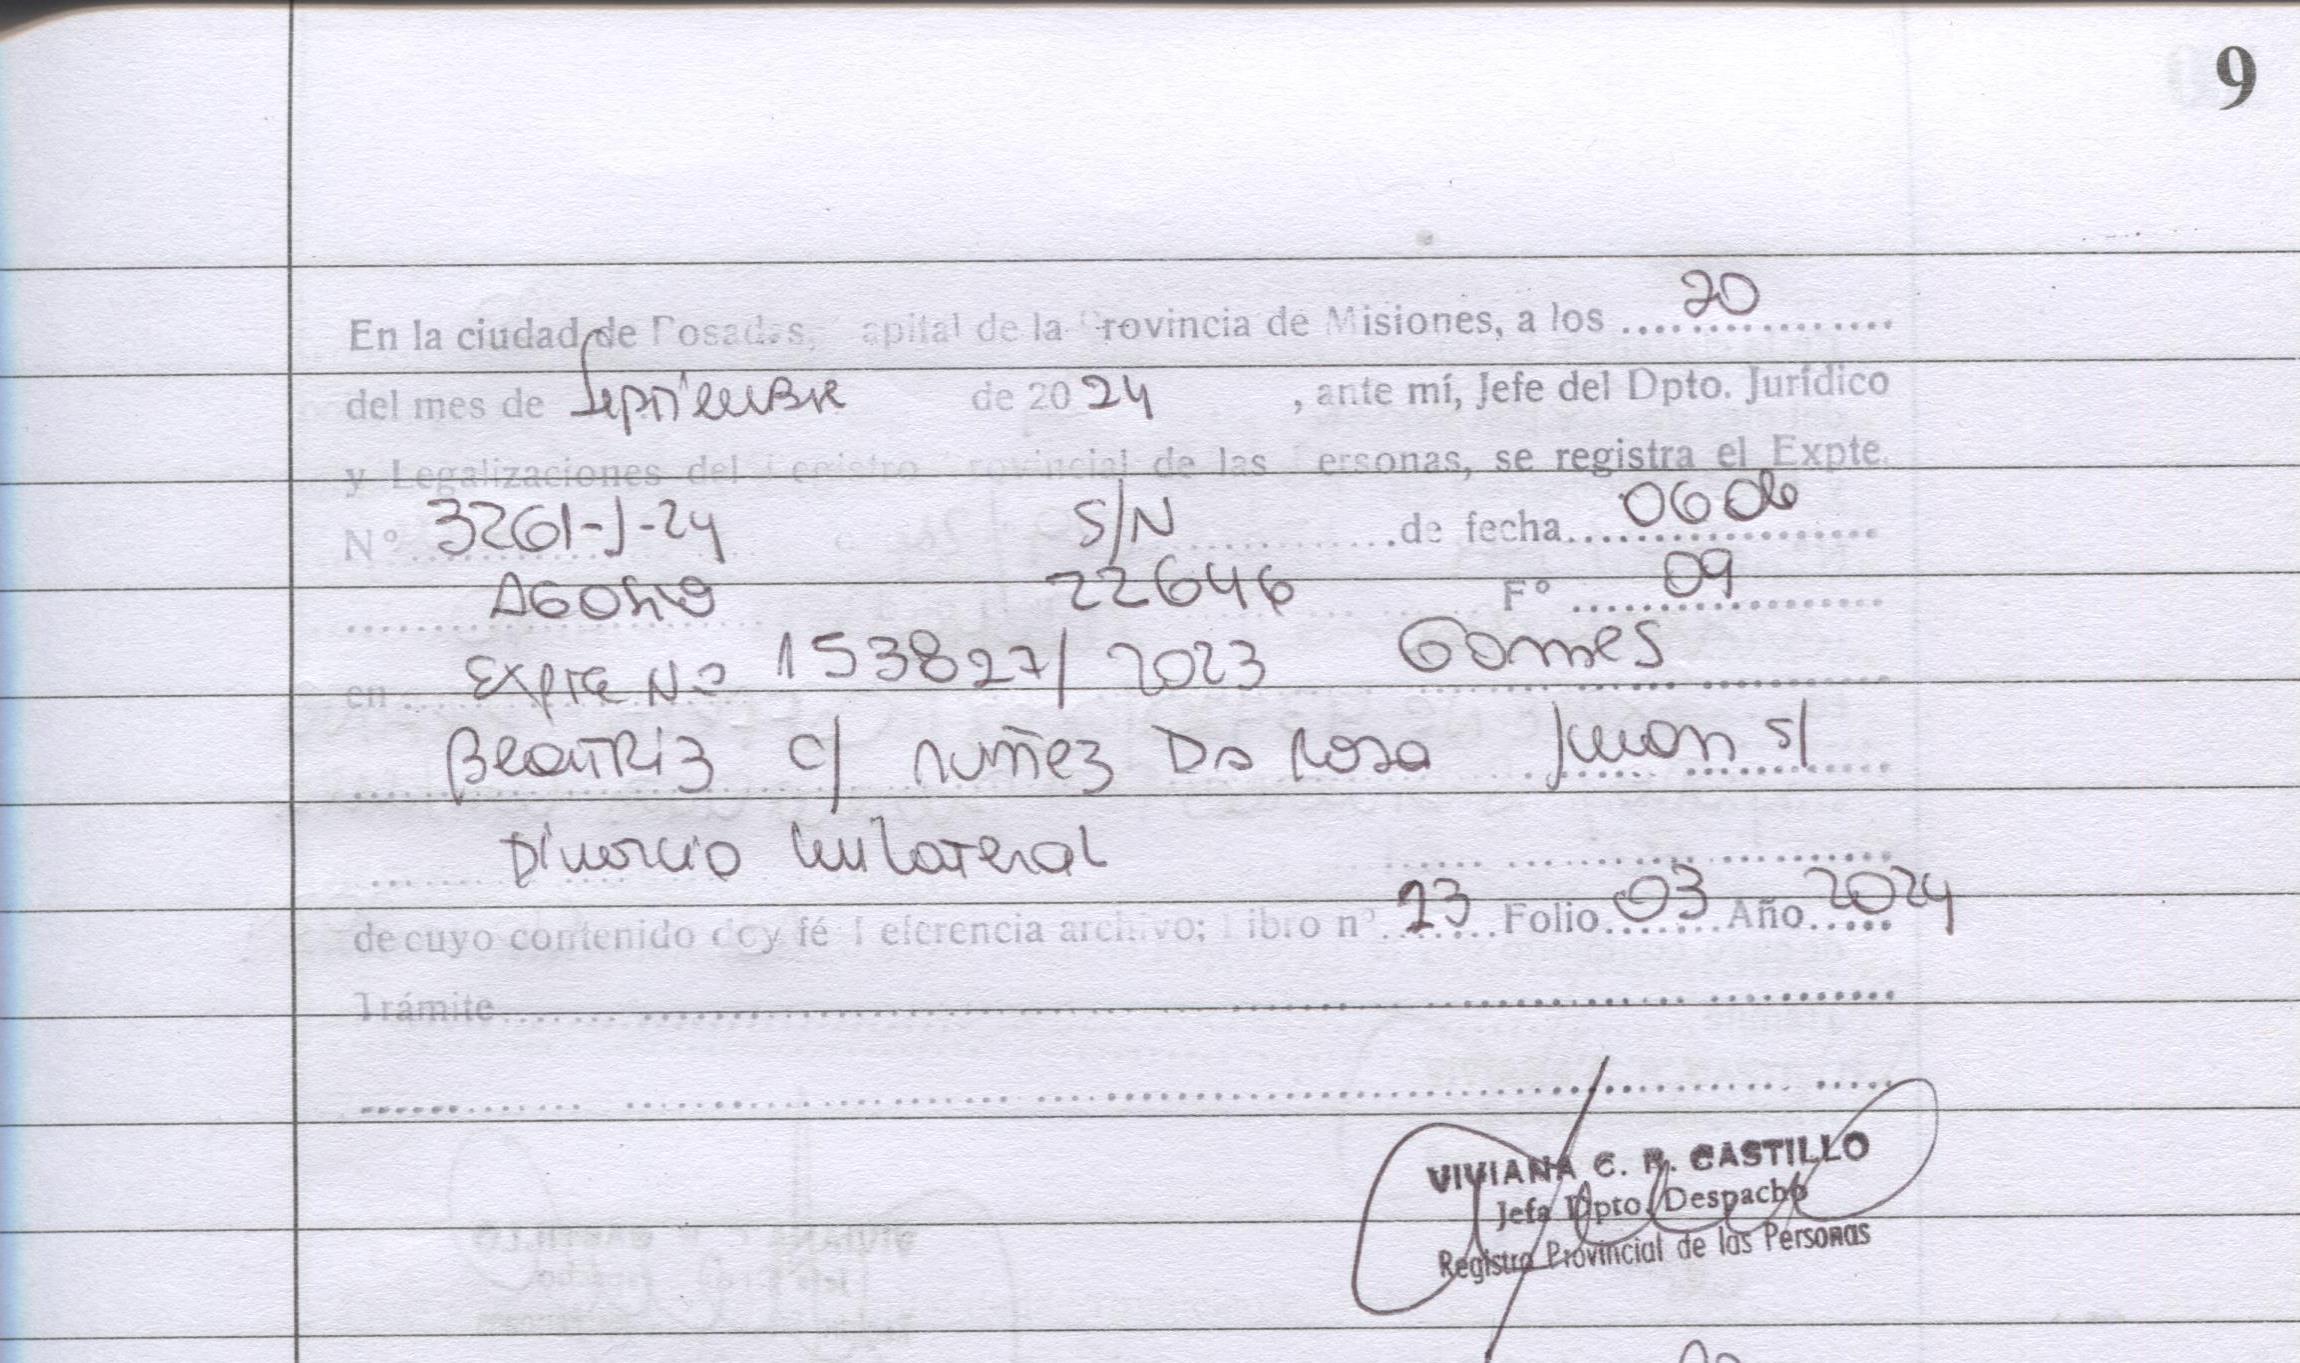 9
En la ciudad de Posadas, capital de la Provincia de Misiones, a los 20
del mes de Septiembre de 2024, ante mí, Jefe del Dpto. Jurídico
y Legalizaciones del Registro Provincial de las Personas, se registra el Expte.
Nº 3261-J-24 S/N de fecha 06 de
Agosto 22646 Fº 09
en Expte Nº 153827/2023 Gomes
Beatriz c/ Nuñez Da Rosa Juan s/
Divorcio Unilateral
de cuyo contenido doy fé Referencia archivo; Libro nº 23 Folio 03 Año 2024
Trámite
VIVIANA C. R. CASTILLO
Jefa Dpto. Despacho
Registro Provincial de las Personas